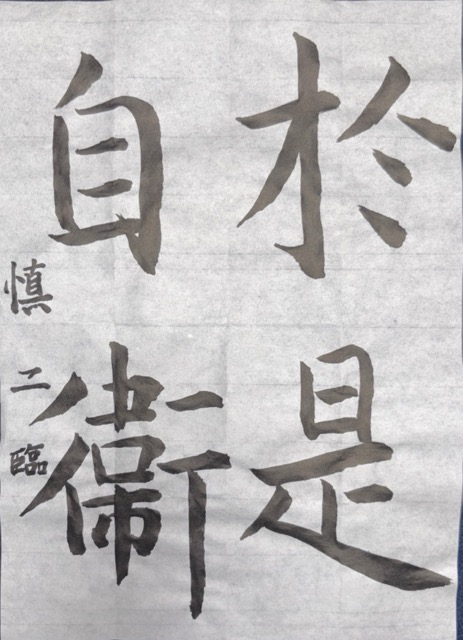 於是
自衛
慎二臨